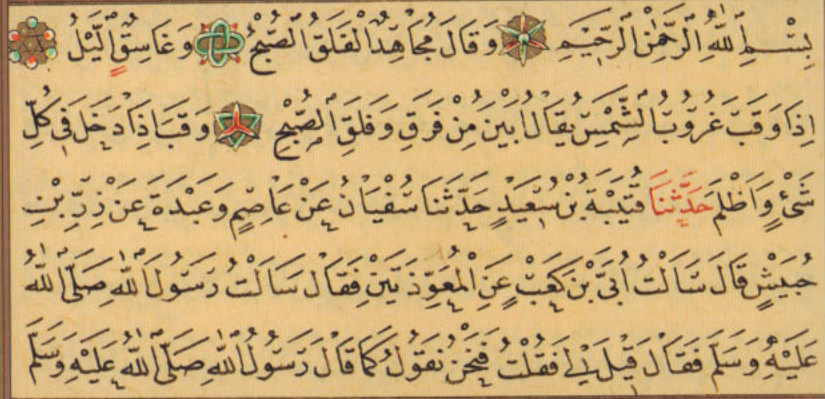 بِسْمِ اللّٰهِ الرَّحْمٰنِ الرَّحِيمِ وَقَالَ مُجَاهِدٌ الْفَلَقُ الصُّبْحُ وَغَاسِقٌ الَّيْلُ
اِذَا وَقَبَ غُرُوبُ الشَّمْسِ يُقَالُ اَبْيَنُ مِنْ فَرَقِ وَفَلَقِ الصُّبْحِ وَقَبَ اِذَا دَخَلَ فِي كُلِّ
شَیْءٍ وَاَظْلَمَ حَدَّثَنَا قُتَيْبَةُ بْنُ سَعِيدٍ حَدَّثَنَا سُفْيَانُ عَنْ عَاصِمٍ وَعَبْدَةَ عَنْ زِرِّ بْنِ
حُبَيْشٍ قَالَ سَاَلْتُ اُبَيَّ بْنَ كَعْبٍ عَنِ الْمُعَوِّذَتَيْنِ فَقَالَ سَاَلْتُ رَسُولَ اللّٰهِ صَلَّى اللّٰهُ
عَلَيْهِ وَسَلَّمَ فَقَالَ قِيلَ لِي فَقُلْتُ فَنَحْنُ نَقُولُ كَمَا قَالَ رَسُولُ اللّٰهِ صَلَّى اللّٰهُ عَلَيْهِ وَسَلَّمَ